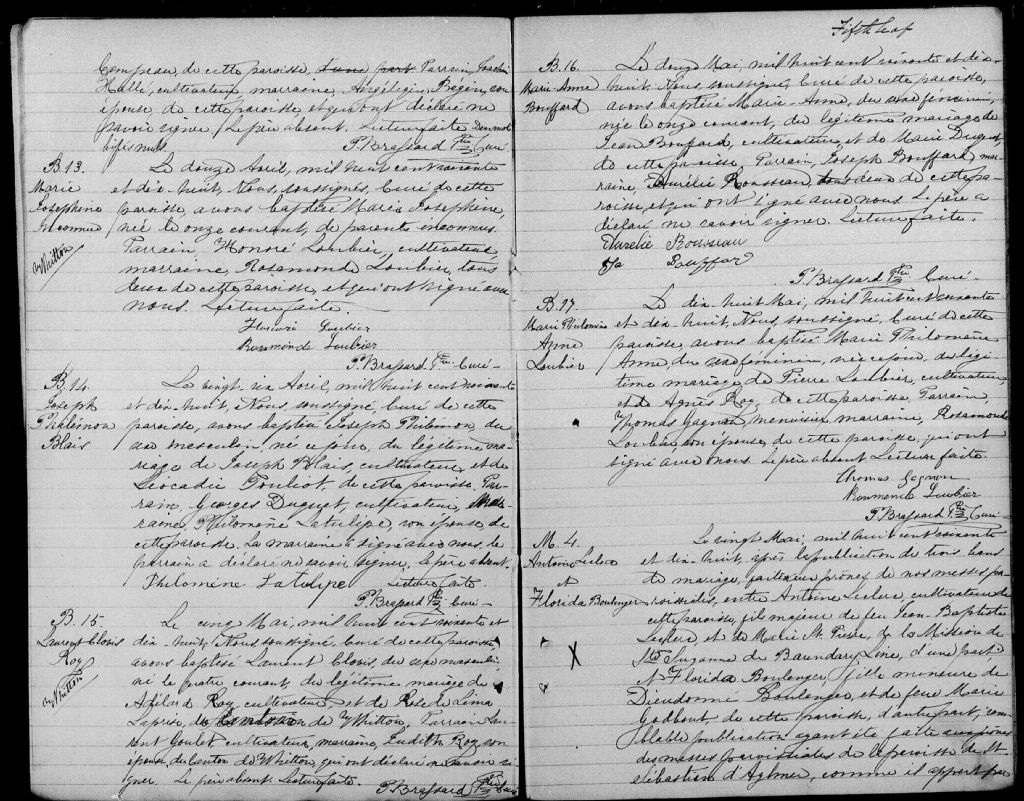 Compeau, de cette paroisse, d'une part Parrain, Joachin
Hallé, cultivateur, marraine, Angélique Bégin, son
épouse de cette paroisse et qui ont déclaré ne
savoir signer. Le père absent. Lecture faite. Deux mots
biffés nuls. P. Brassard Ptre Curé
B. 13. Le douze Avril, mil huit cent soixante
Marie et dix-huit, Nous, soussigné, Curé de cette
Josephine paroisse, avons baptisé Marie Josephine,
Inconnue née le onze courant, de parents inconnus.
Whitton Parrain, Honoré Loubier, cultivateur,
marraine, Rosamonde Loubier, tous
deux de cette paroisse, et qui ont signé avec
nous. Lecture faite.
Honoré Loubier
Rosmonde Loubier
P. Brassard Ptre Curé-
B. 14. Le vingt six Avril, mil huit cent soixante
Joseph et dix-huit, Nous, soussigné, Curé de cette
Philémon paroisse, avons baptisé Joseph Philémon, du
Blais sexe masculin, né ce jour, du légitime ma-
riage de Joseph Blais, cultivateur, et de
Léocadie Pouliot, de cette paroisse. Par-
rain, Georges Duquet, cultivateur, Mar-
raine, Philomène Latulipe, son épouse de
cette paroisse. La marraine a signé avec nous le
parrain a déclaré ne savoir signer, le père absent.
Philomène Latulipe Lecture faite
P. Brassard Ptre Curé-
B. 15. Le cinq Mai, mil huit cent soixante et
Laurent Clovis dix-huit, Nous soussigné, Curé de cette paroisse
Roy avons baptisé Laurent Clovis, du sexe masculin
Whitton né le quatre courant, du légitime mariage de
Adélard Roy, cultivateur, et de Rose de Lima
Laprise, du Canton de Whitton, Parrain Lau-
rent Goulet, cultivateur, marraine, Judith Roy, son
épouse, du Canton de Whitton, qui ont déclaré ne savoir si-
gner. Le père absent. Lecture faite. P. Brassard Ptre Curé
Fifth leaf
B. 16. Le douze Mai, mil huit cent soixante et dix-
Marie-Anne huit, Nous, soussigné, Curé de cette paroisse,
Bouffard avons baptisé Marie-Anne, du sexe féminin,
née le onze courant, du légitime mariage de
Jean Bouffard, cultivateur, et de Marie Duquet,
de cette paroisse, Parrain, Joseph Bouffard, mar-
raine, Aurélie Rousseau, tous deux de cette pa-
roisse, et qui ont signé avec nous. Le père a
déclaré ne savoir signer. Lecture faite.
Aurelie Rousseau
Bouffar
P. Brassard Ptre Curé-
B. 17. Le dix-huit Mai, mil huit cent soixante
Marie Philomène et dix-huit, Nous, soussigné, Curé de cette
Anne paroisse, avons baptisé Marie Philomène
Loubier Anne, du sexe féminin, née ce jour, du légi-
time mariage de Pierre Loubier, cultivateur
et de Agnès Roy, de cette paroisse, Parrain,
Thomas Gagnon, menuisier, marraine, Rosamonde
Loubier, son épouse, de cette paroisse, qui ont
signé avec nous. Le père absent Lecture faite.
Thomas Gagnon
Rosmende Loubier
P. Brassard Ptre Curé-
M. 4. Le vingt Mai, mil huit cent soixante
Antoine Leclerc et dix-huit, après la publication de trois bans
et de mariage, faite aux prônes de nos messes pa-
Florida Boulanger roissiales, entre Antoine Leclerc, cultivateur de
cette paroisse, fils majeur de feu Jean-Baptiste
Leclerc et de Marie St. Pierre, de la Mission de
X Ste Suzanne de Baundary Line, d'une part,
et Florida Boulanger, fille mineure de
Dieudonné Boulanger, et de feue Marie
Godbout, de cette paroisse, d'autre part, sem-
blable publication ayant été faite aux prônes
des messes paroissiales de la paroisse de St.
Sébastien d'Aylmer, comme il appert par